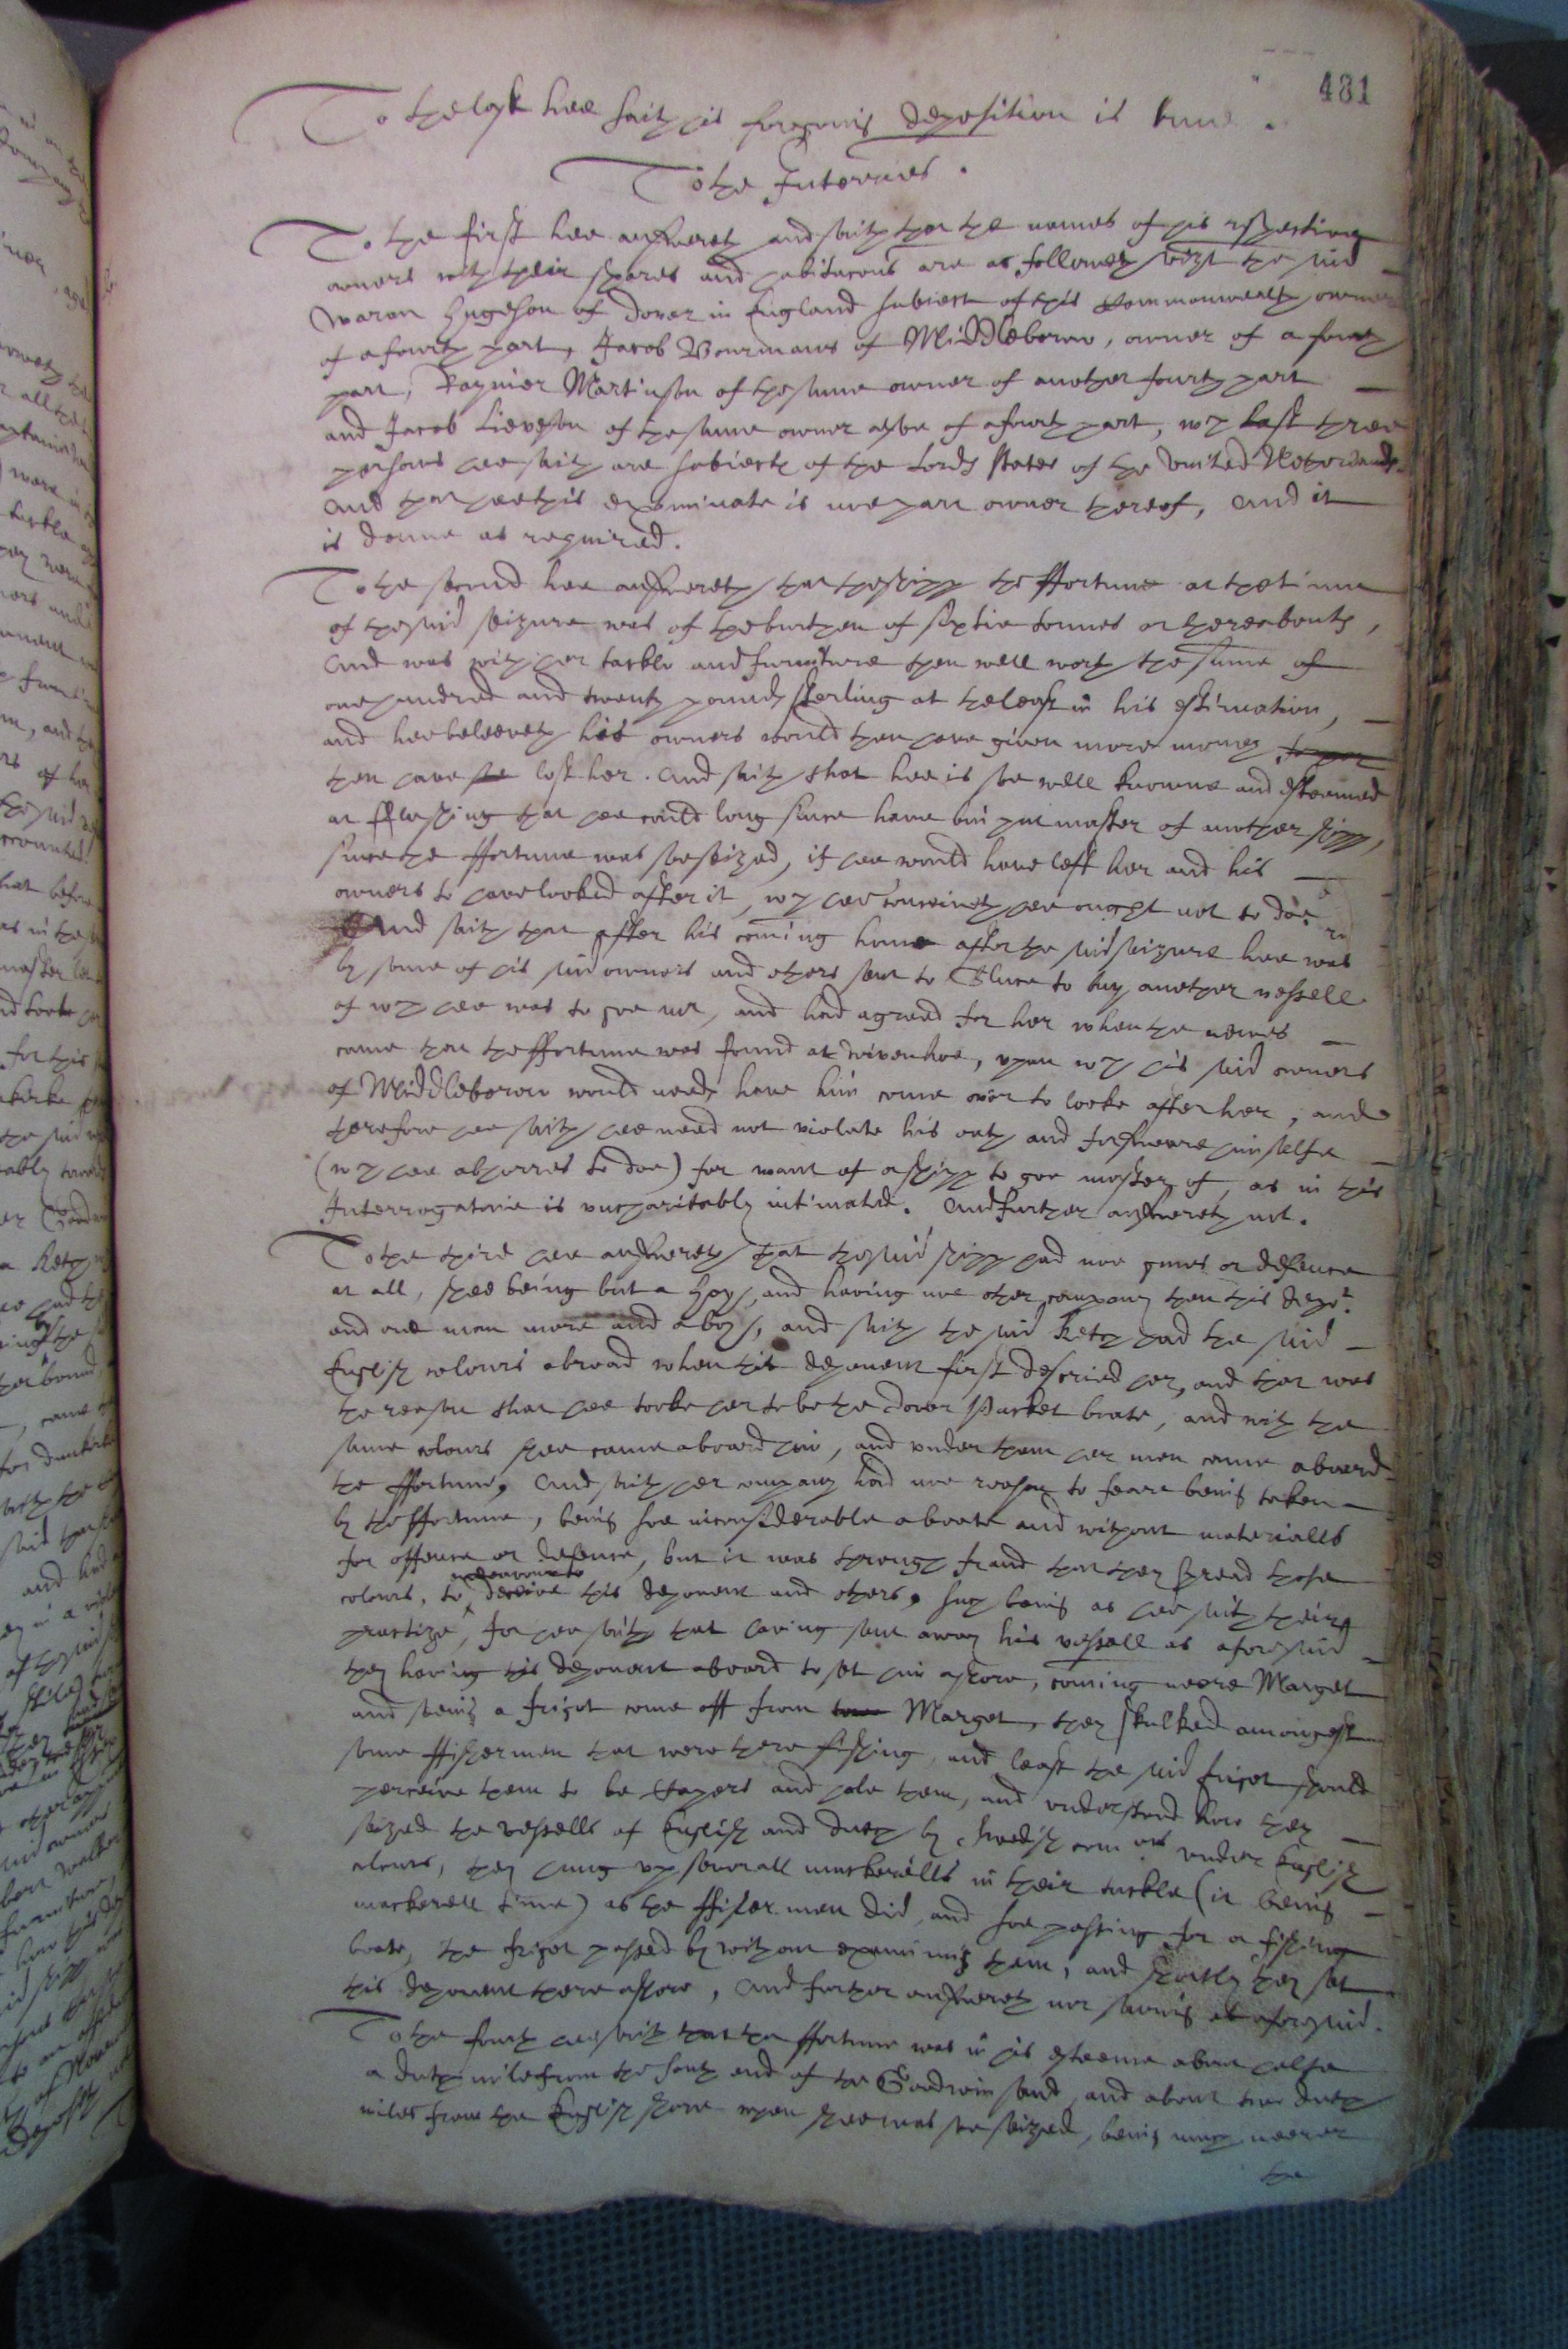 481
To the last hee saith his foregoing deposition is true.
To the Interries.
To the first hee answereth and saith that the names of his respective
owners with their shares and habitacons are as followeth vizt the said
Waron Hugeson of Dover in England subiect of this Commonwealth owner
of a fourth part, Jacob Bourmans of Middleborow, owner of a fourth
part, Raynier Martinson of the same owner of another fourth part
and Jacob Lieveson of the same owner alsoe of a fourth part, wch last three
persons hee saith are subiects of the Lords States of the United Netherlands.
And that hee this examinate is noe part owner thereof, and it
is donne as required.
To the second hee answereth that the shipp the ffortune at the time
of the said seizure was of the burthen of sixtie tonnes or thereabouts,
and was with her tackle and furniture then well worth the summe of
one hundred and twenty pounds sterling at the least in his estimation,
and hee beleeveth his owners would then have given more money to her
then have se lost her. And saith that hee is soe well knowne and esteemed
at fflushing that hee could long since have bin put master of another shipp,
since the ffortune was soe seized, if hee would have left her and his
owners to have looked after it, wch hee conceiveth hee ought not to doe.
And saith that after his coming home after the said seizure hee was
by some of his said owners and others sent to Sluce to buy another vessell
of wch hee was to goe mr, and had agreed for her when the newes
came that the ffortune was found at Wivenhoe, upon wch his said owners
of Middleborow would needs have him come over to looke after her, and
therefore hee saith hee need not violate his oath and forsweare himselfe
(wch hee abhorres to doe) for want of a shipp to goe master of, as in this
Interrogatorie is uncharitably intimated. And further answereth not.
To the third hee answereth that the said shipp had noe gunns or defence
at all, shee being but a hoye, and having noe other company then this depot
and one man more and a boye, and saith the said Ketch had the said
English colours abroad when this deponent first descried her, and that was
the reason that hee tooke her to be the Dover Packet boate, and with the
same colours shee came aboard him, and under them her men came aboard
the ffortune, And saith her company had noe reason to feare being taken
by the ffortune, being soe inconsiderable a boate and without materialls
for offence or defence, but it was through fraud that they spread those
colours, to endeavour to deceive this deponent and others, such being as hee saith their
practize, for hee saith that having sent away his vessell as aforesaid
they having this deponent aboard to set him ashore, coming neere Marget
and seeing a frigot come off from towa Marget, they skulked amongest
some ffishermen that were there fishing, and least the said frigot should
perceive them to be Capers and hale them, and understand how they
seized the vessells of English and Dutch by Swedish com ons under English
colours, they hung up severall mackerells in their tackle (it being
mackerell time) as the ffisher men did, and soe passing for a fishing
boate, the frigot passed by without examining them, and shortly they set
this deponent there ashore, And further answereth not saving as aforesaid.
To the fourth hee saith that the ffortune was in his esteeme about halfe
a dutch mile from the south end of the Goodwin sand, and about two dutch
miles from the English shore when shee was soe seized, being much neerer
the